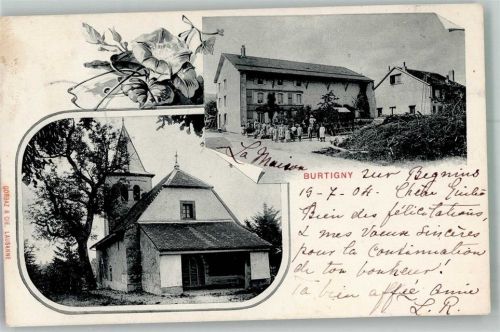 La Maison
BURTIGNY sur Begnins
19-7-04. Chère Giulia
Bien des félicitations,
& mes vœux sincères
pour la continuation
de ton bonheur!
Ta bien affée amie
L. R.
CORBAZ & CIE. LAUSANNE